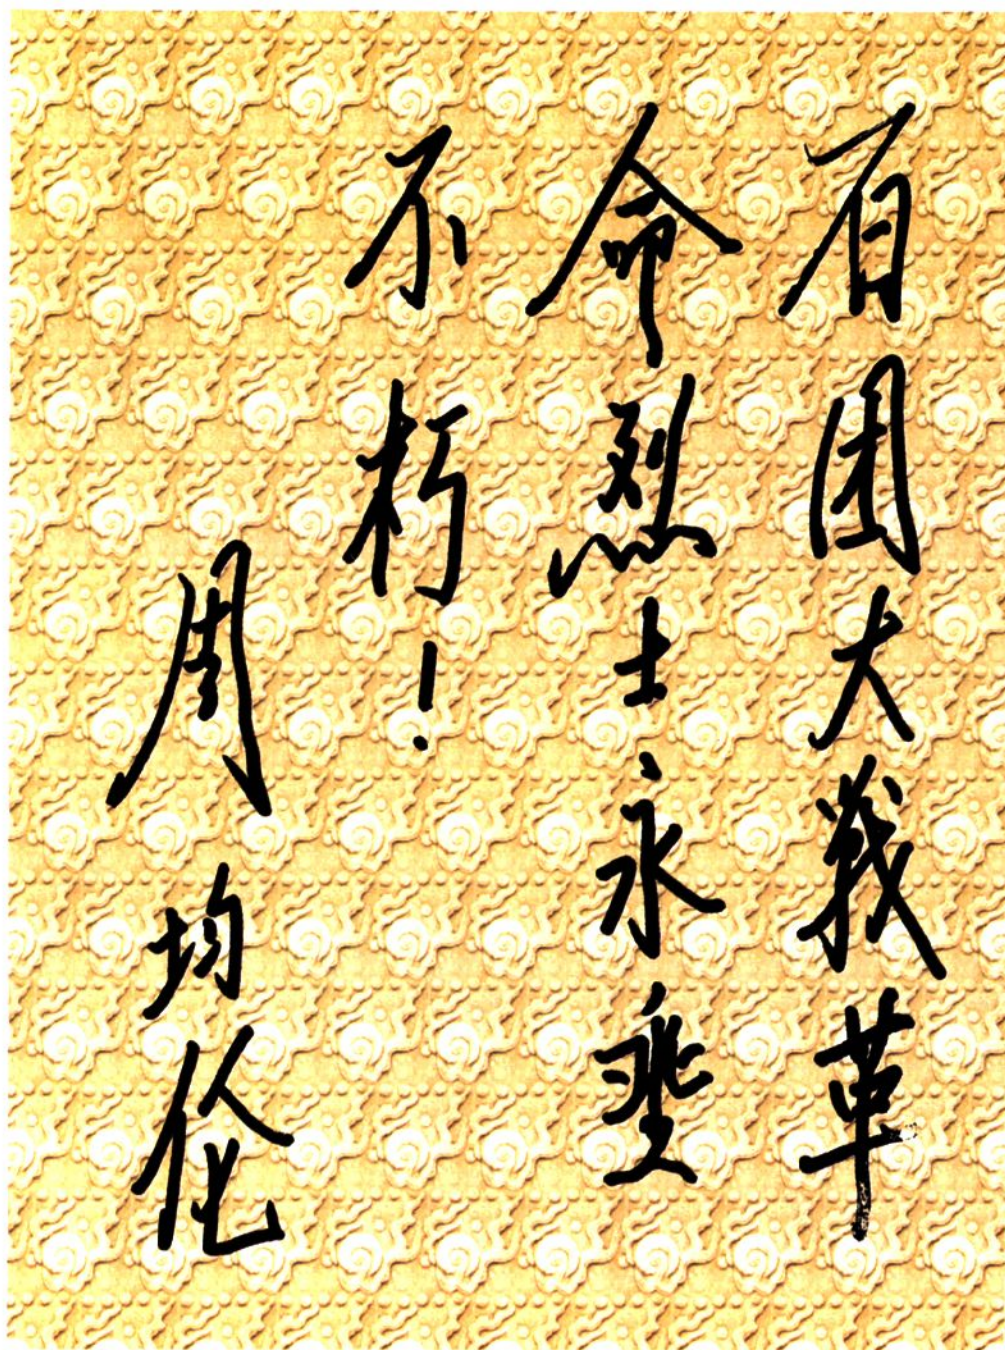 百团大戰革
命烈士永垂
不朽！
周均伦